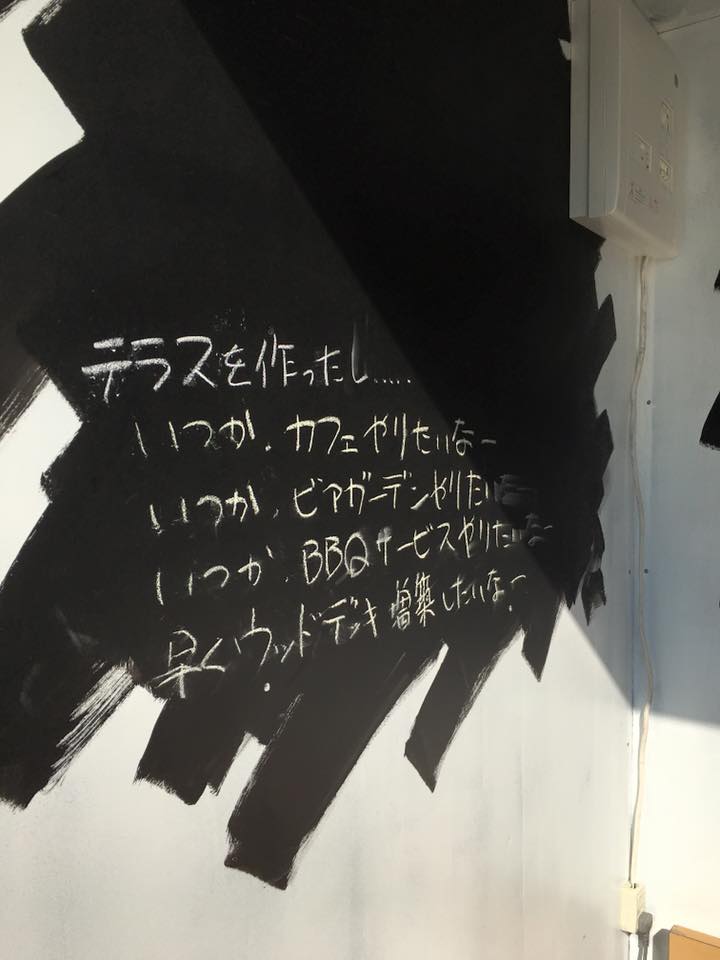 テラスを作ったし.....
いつか、カフェやりたいなー
いつか、ビアガーデンやりたいなー
いつか、BBQサービスやりたいなー
早くウッドデッキ増築したいなー